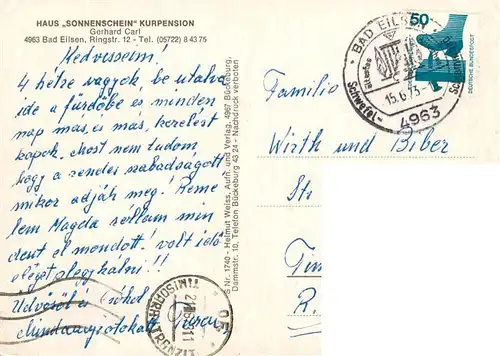 HAUS „SONNENSCHEIN" KURPENSION
Gerhard Carl
4963 Bad Eilsen, Ringstr. 12 - Tel. (05722) 8 43 75
Kedveseim!
4 hétre vagyok be utalva
ide a fürdőbe és minden
nap mas, és más, kezelest
kapok. Most nem tudom
hogy a rendes szabadságott
mikor adják meg! Reme
lem Magda rollam min
dent el mondott! volt idő
eleget
Üdvözöl és csókol
Mindannyiotokat
Nr. 1740 - Helmut Weiss, Aufn. und Verlag, 4967 Bückeburg,
Dammstr. 10, Telefon Bückeburg 43 24 - Nachdruck verboten
50
DEUTSCHE BUNDESPOST
BAD EILSEN
Schwefel-
15.6.73
4963
Familie
Wirth und Biber
St
Tim
R.
TIMISOARA